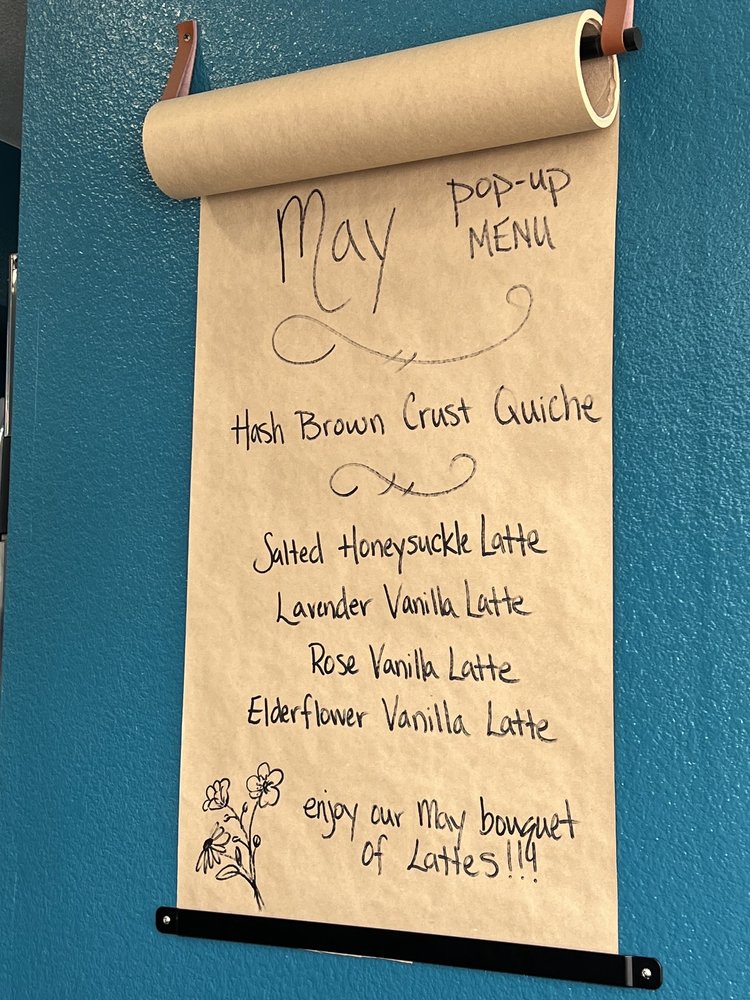 May
pop-up
MENU
Hash Brown Crust Quiche
Salted Honeysuckle Latte
Lavender Vanilla Latte
Rose Vanilla Latte
Elderflower Vanilla Latte
enjoy our May bouquet
of Lattes!!!